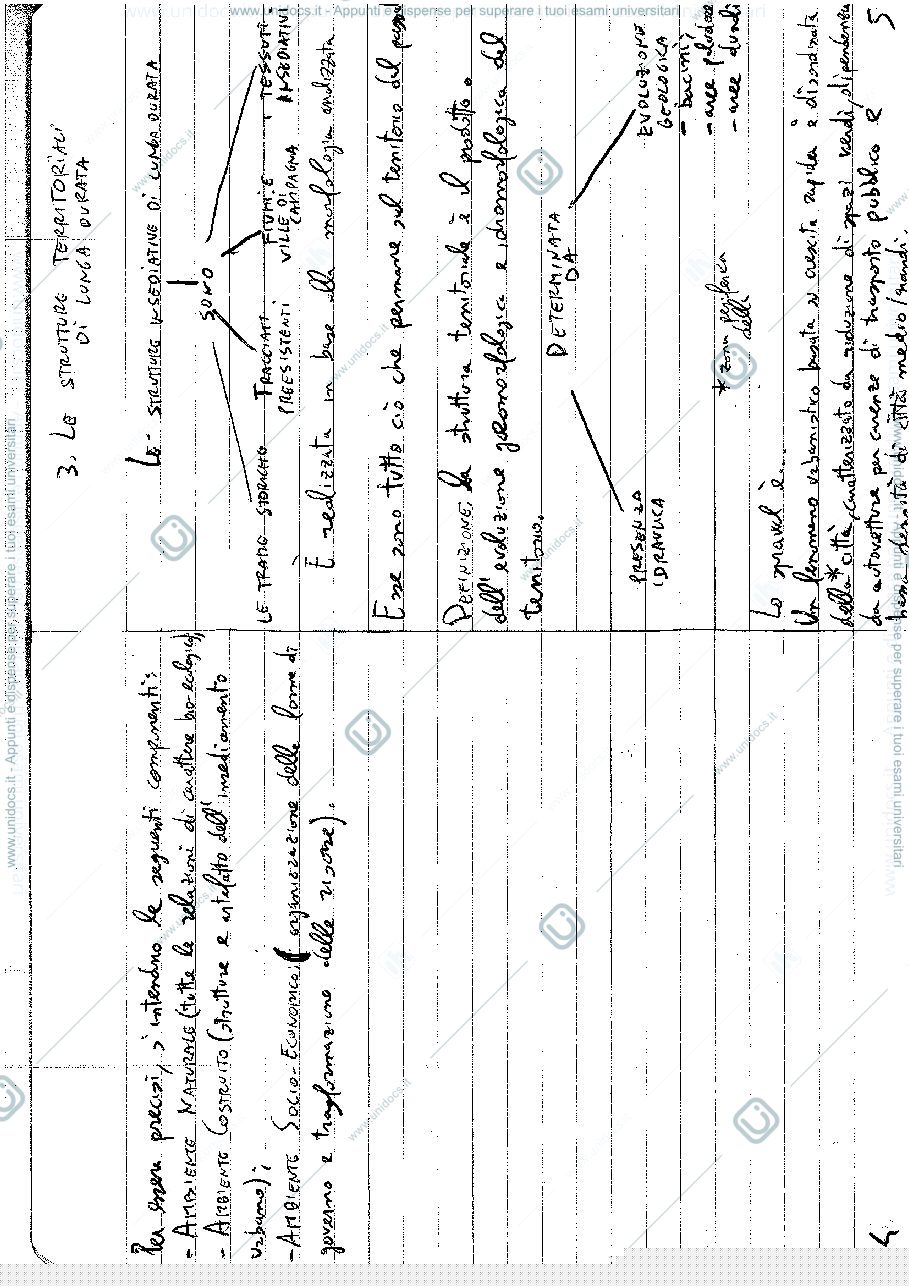 Per essere precisi, s'intendono le seguenti componenti:
- AMBIENTE NATURALE (tutte le relazioni di carattere bio-ecologico)
- AMBIENTE COSTRUITO (strutture e artefatto dell'insediamento
urbano);
- AMBIENTE SOCIO-ECONOMICO (organizzazione delle forme di
governo e trasformazione delle risorse).
4
3. LE STRUTTURE TERRITORIALI
DI LUNGA DURATA
LE - STRUTTURE INSEDIATIVE DI LUNGA DURATA
SONO
LE TRADE STORICHE
TRACCIATI
PREESISTENTI
FIUMI E
VILLE DI
CAMPAGNA
TESSUTI
INSEDIATIVI
È realizzata in base alla morfologia analizzata.
Esse sono tutto ciò che permane sul territorio del
DEFINIZIONE: la struttura territoriale è il prodotto
dell'evoluzione geomorfologica e idromorfologica del
territorio.
DETERMINATA
DA
PRESENZA
IDRAULICA
EVOLUZIONE
GEOLOGICA
- bacini;
- aree paludose
- aree
* zona periferica
della
Lo sprawl è...
Un fenomeno urbanistico basata su crescita rapida e disordinata
della * città, caratterizzato da riduzione di spazi verdi, dipendenza
da autovetture per carenze di trasporto pubblico e
bassa densità di città medio/grandi.
5
www.unidocs.it - Appunti e dispense per superare i tuoi esami universitari